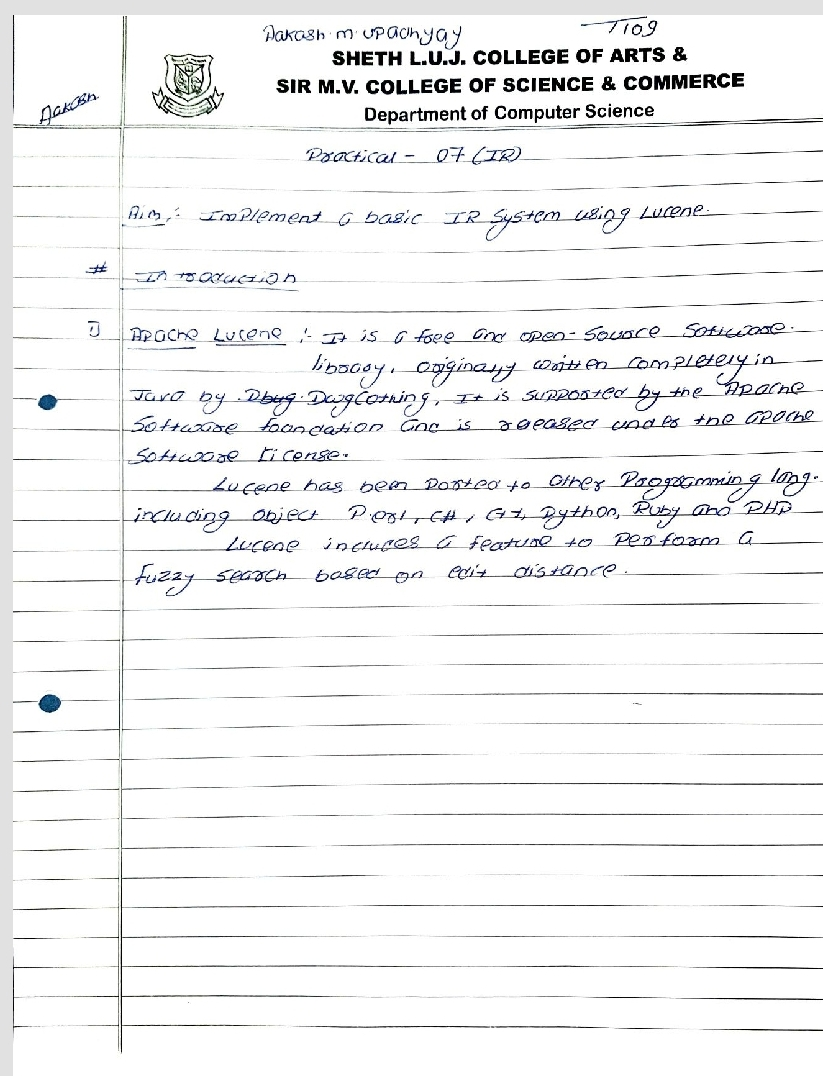 Aakash m upadhyay
T109
SHETH L.U.J. COLLEGE OF ARTS &
SIR M.V. COLLEGE OF SCIENCE & COMMERCE
Department of Computer Science
Aakash
Practical - 07 (IR)
Aim :- Implement a basic IR System using Lucene.
# Introduction
1) Apache Lucene :- It is a free and open-source software
library, originally written completely in
Java by Doug Cutting, It is supported by the Apache
Software foundation and is released under the apache
Software License.
Lucene has been ported to other programming lang.
including object Perl, C#, C++, Python, Ruby and PHP
Lucene includes a feature to perform a
fuzzy search based on edit distance.